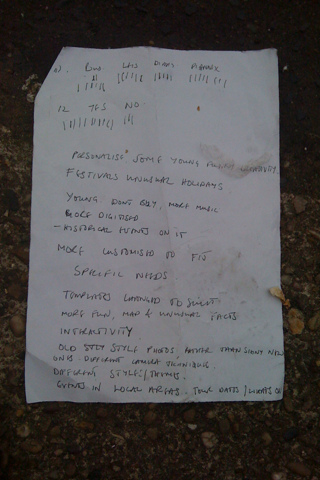 DIARY
12. YES NO
PERSONALISE SOME YOUNG
FESTIVALS UNUSUAL HOLIDAYS
YOUNG DON'T BUY, MORE MUSIC
MORE DIGITISED
- HISTORICAL EVENTS ON IT
MORE CUSTOMISED TO FIT
SPECIFIC NEEDS
TEMPLATES CHANGED TO SUIT
MORE FUN, MAD & UNUSUAL FACTS
INTERACTIVITY
OLD STYLE PHOTOS RATHER THAN SHINY NEW
ONES. DIFFERENT CAMERA TECHNIQUE.
DIFFERENT STYLES/
EVENTS IN LOCAL AREAS. TOUR DATES/